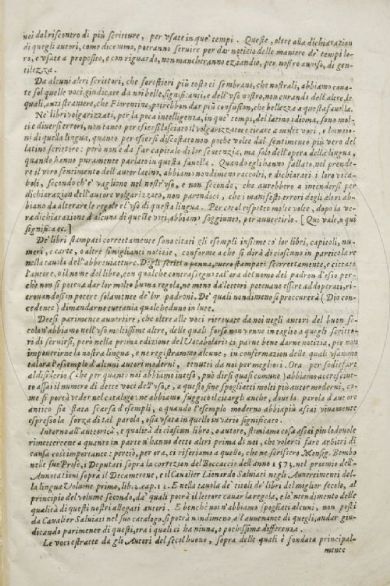 uei dal riscontro di più scritture, per vsate in que' tempi. Queste, oltre alla dichiarazion
di quegli autori, come dicemmo, potranno seruire per dar notizia delle maniere de' tempi lo-
ro, e vsate a proposito, e con riguardo, non mancheranno ezandio, per nostro auuiso, di gen-
tilezza.
Da alcuni altri scrittori, che forestieri più tosto ci sembrani, che nostrali, abbiamo caua-
te sol quelle voci, giudicate da noi belle, significatiue, e dell'vso nostro, non curando dell'altre, le
quali, anzi straniere, che Fiorentine, potrebbon dar più confusion, che bellezza a questa fauella.
Ne' libri volgarizzati, per la poca intelligenza, in que' tempi, del latino idioma, sono mol-
ti e diuersi errori, non tanto per esser
ni di quella lingua, quanto per essersi discostati non poche volte dal sentimento più vero del
latino scrittore: però non è da far caso tale di lor scienzia, ma solo dell'opera della lingua,
quando hanno puramente parlato in questa fauella. Quando egli hanno fallato, nel prende-
re il vero sentimento dell'autor latino, abbiamo nondimeno raccolti, e dichiarati i loro voca-
boli, secondo ch'e' vagliono nel nostr'vso, e non secondo, che aurebbero a intendersi per
dichiarazion dell'autore volgarizzato, non parendoci, che i manifesti errori degli altri ab-
biano da alterare le regole e l'vso di questa lingua. Per contrassegno tale volta, dopo la ve-
ra dichiarazione d'alcuna di queste voci, abbiamo soggiunto, per auuertirlo. [Qui vale, o qui
significa ec.]
De' libri stampati correttamente sonosi citati gli esempli insieme co' lor libri, capitoli, nu-
meri, e carte, o altre simiglianti notizie, conforme a che si dirà di ciascuno in particolare
nella tauola dell'abbreuiature. Degli scritti a penna, ouero stampati scorrettamente, è citato
l'autore, o il nome del libro, con qualche contrassegno tal'ora del nome del padron d'esso per-
chè non si poteua dar lor molto buona regola, ne meno da' lettori potendosi essere adoperati, ri-
trouandosi in potere solamente de' lor padroni. De' quali nondimeno si proccurerà (Dio con-
cedente) di mandarne vn centinaio, qualche dua in luce.
Deesi parimente auuertire, che oltre alle voci ritrouate da noi negli autori del buon se-
colo n'abbiamo nell'vso moltissime altre, delle quali forse non venne in taglio a quegli scritto-
ri di seruirsi, però nella prima edizione del Vocabolario ci parue bene darne notizia, per non
impouerirne la nostra lingua, e ne registrammo alcune, in confermazion delle quali vsammo
talora l'esemplo d'alcuni autori moderni, tenuti da noi per migliori. Ora per sodisfare
al disiderio (che per quanto noi abbiamo inteso, può dirsi quasi comune) abbiamo accresciuto
te assai il numero di dette voci dell'vso, e a questo fine spogliati molti più autor moderni, co-
me si potrà veder nel catalogo: ne abbiamo sfuggito il citargli anche, doue la parola d'autore
antico sia stata scarsa d'esempli, o quando l'esempio moderno abbia più assai viuamente
espressa la forza di tal parola, o sia vsata in quello in vero significato.
Intorno all'autorità, e qualità di ciascun libro, e autore, stimiamo cosa assai più lodeuole
rimettercene a quento in parte n'hanno detto altri prima di noi, che volerci fare arbitri di
causa così importante: perciò, per ora, ci riferiamo a quello, che ne scrissero Monsig. Bembo
nelle sue Prose, i Deputati sopra la correzion del Boccaccio dell'anno 1573. nel proemio dell'
Annotazioni sopra il Decamerone, e il Caualier Lionardo Saluiati negli Auuertimenti del-
la lingua Volume primo, lib. 2. cap. 12. E nella tauola de' titoli de' libri del miglior secolo, al
principio del volume secondo, da' quali potrà il lettore cauar la regola, e l'intendimento delle
qualità di questi nostri allegati autori. E benchè noi n'abbiamo spogliati alcuni, non posti
da Caualier Saluiati nel suo catalogo, si potrà nondimeno, a l'auuenanze di quegli, andar giu-
dicando parimente di questi, tra i quali ci ha ninna, o pochissima differenza.
Le voci estratte da gli Autori del secol buono, sopra delle quali è fondata principal-
mente